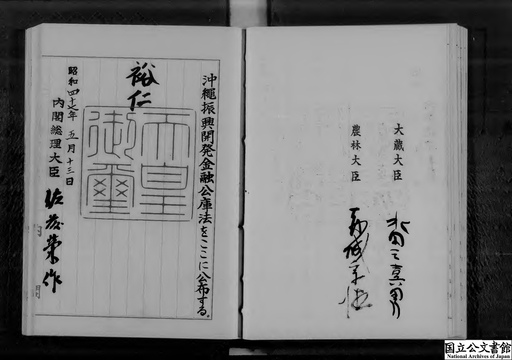 大蔵大臣 水田三喜男
農林大臣 赤城宗徳
沖縄振興開発金融公庫法をここに公布する。
裕仁
天皇御璽
昭和四十七年五月十三日
内閣総理大臣 佐藤榮作
国立公文書館
National Archives of Japan